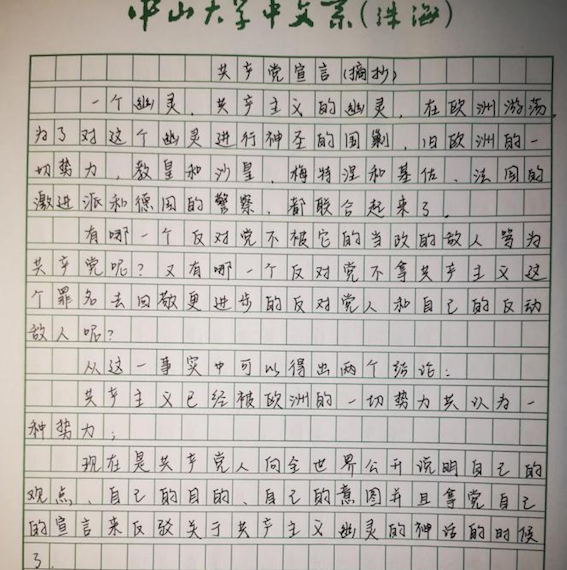 中山大学中文系(珠海)
共产党宣言(摘抄)
一个幽灵,共产主义的幽灵,在欧洲游荡,
为了对这个幽灵进行神圣的围剿,旧欧洲的一
切势力,教皇和沙皇,梅特涅和基佐、法国的
激进派和德国的警察,都联合起来了.
有哪一个反对党不被它的当政的敌人骂为
共产党呢?又有哪一个反对党不拿共产主义这
个罪名去回敬更进步的反对党人和自己的反动
敌人呢?
从这一事实中可以得出两个结论:
共产主义已经被欧洲的一切势力共认为一
种势力;
现在是共产党人向全世界公开说明自己的
观点、自己的目的、自己的意图并且拿党自己
的宣言来反驳关于共产主义幽灵的神话的时候
了.